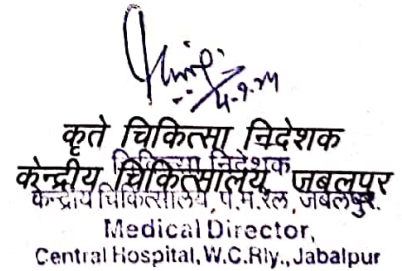 4-9-24
कृते चिकित्सा निदेशक
चिकित्सा निदेशक
केन्द्रीय चिकित्सालय, जबलपुर
केन्द्रीय चिकित्सालय, प.म.रेल, जबलपुर.
Medical Director,
Central Hospital, W.C.Rly., Jabalpur